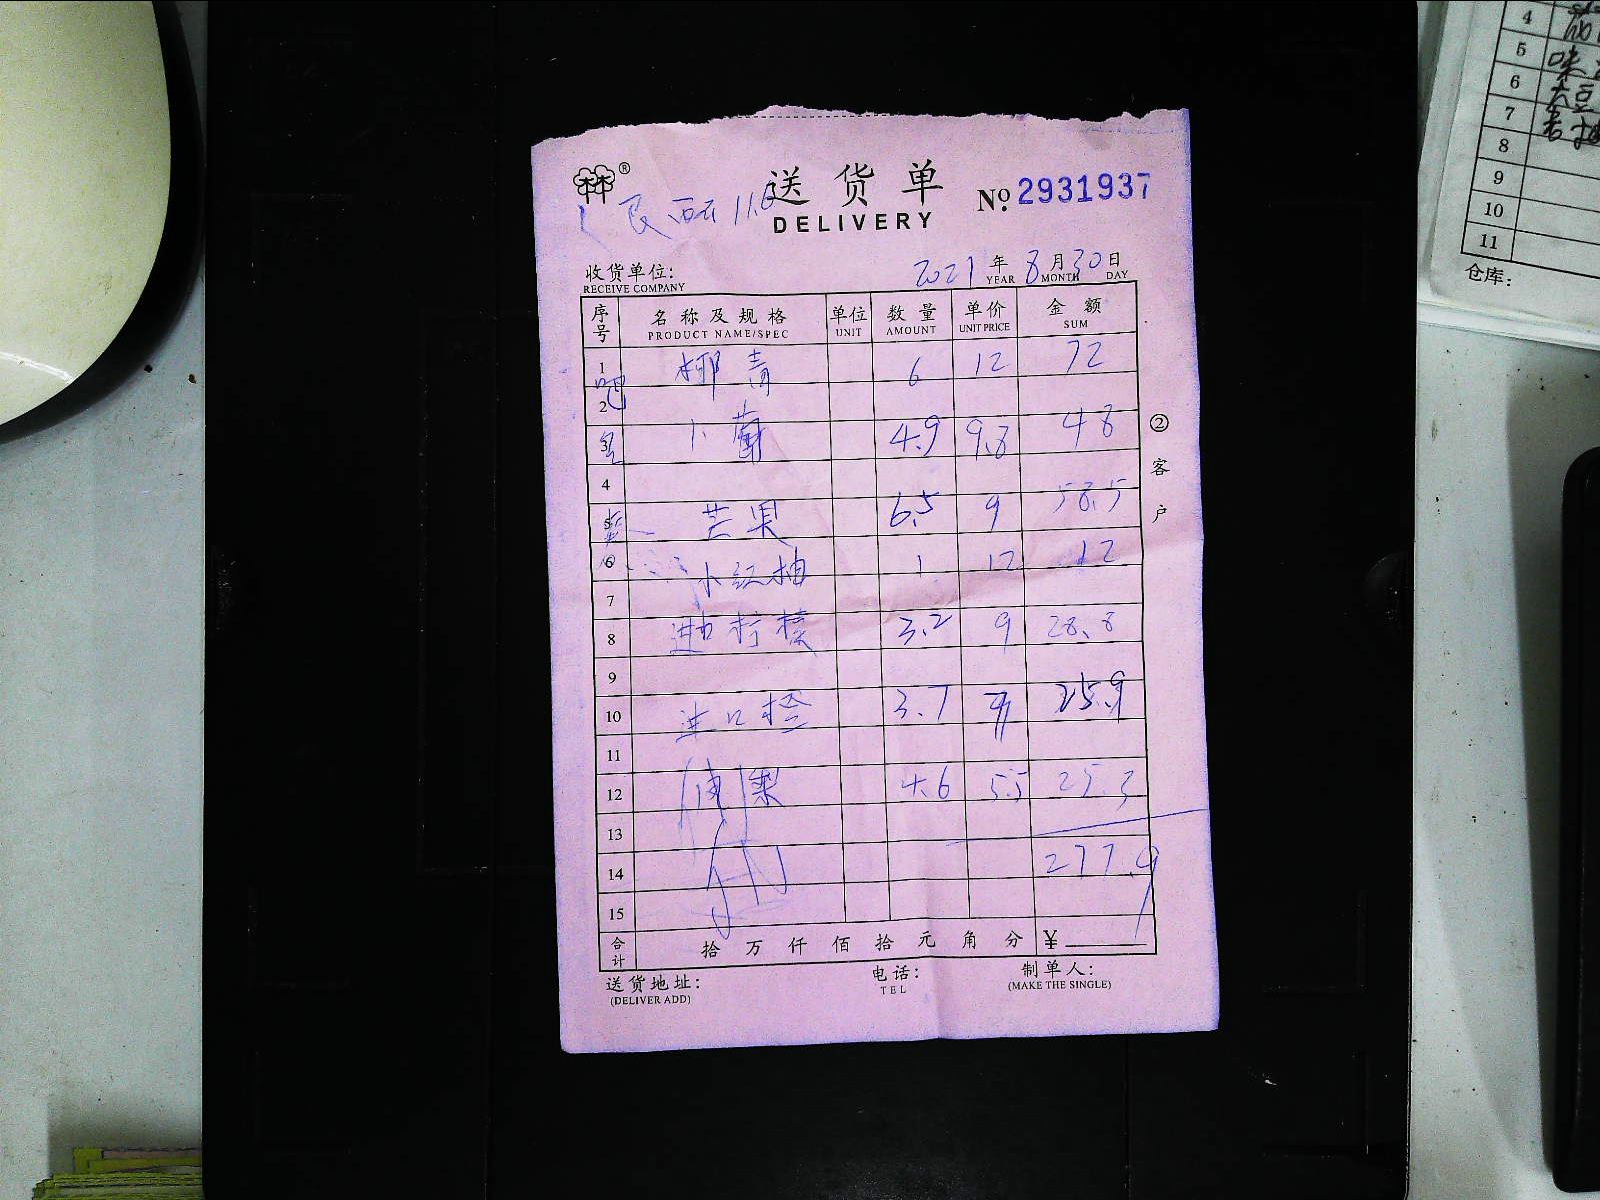 林®
送货单
DELIVERY
No. 2931937
收货单位:
RECEIVE COMPANY
2021 年 8 月 30 日
YEAR MONTH DAY
序号 名称及规格 单位 数量 单价 金额
PRODUCT NAME/SPEC UNIT AMOUNT UNIT PRICE SUM
1 椰青 6 12 72
吧
2
3 4.9 9.8 48
4
5 芒果 6.5 9 58.5
6 小红柚 1 12 12
7
8 进口柠檬 3.2 9 28.8
9
10 进口橙 3.7 7 25.9
11
12 梨 4.6 5.5 25.3
13
14 277.9
15
合计 拾 万 仟 佰 拾 元 角 分 ¥
送货地址:
(DELIVER ADD)
电话:
TEL
制单人:
(MAKE THE SINGLE)
②客户
4
5 味
6 大豆
7
8
9
10
11
仓库: